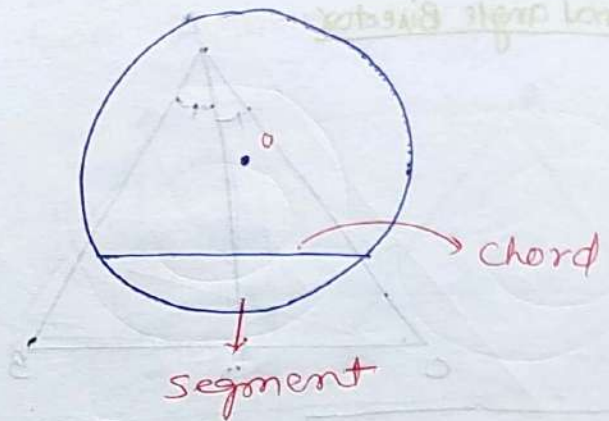 o
chord
segment